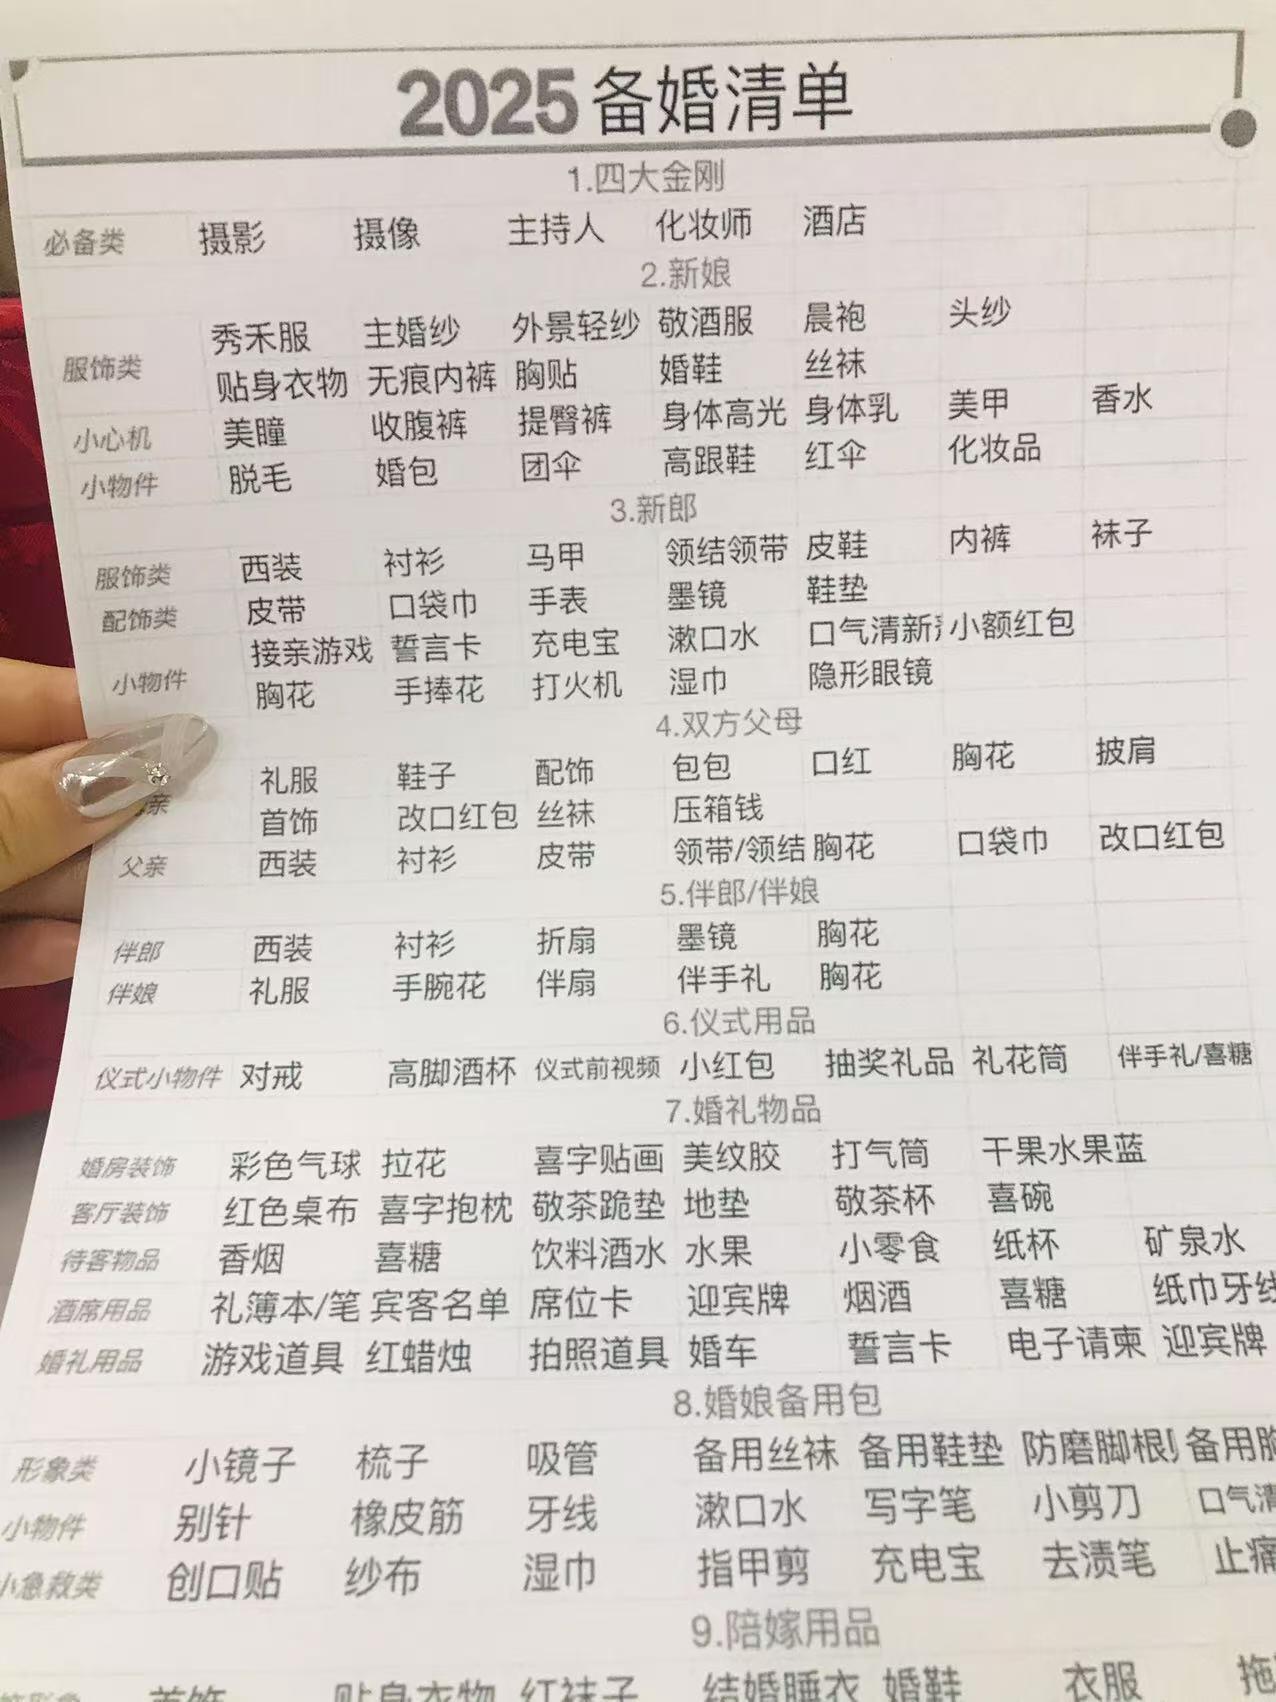 2025备婚清单
1.四大金刚
必备类 摄影 摄像 主持人 化妆师 酒店
2.新娘
服饰类 秀禾服 主婚纱 外景轻纱 敬酒服 晨袍 头纱
贴身衣物 无痕内裤 胸贴 婚鞋 丝袜
小心机 美瞳 收腹裤 提臀裤 身体高光 身体乳 美甲 香水
小物件 脱毛 婚包 团伞 高跟鞋 红伞 化妆品
3.新郎
服饰类 西装 衬衫 马甲 领结领带 皮鞋 内裤 袜子
配饰类 皮带 口袋巾 手表 墨镜 鞋垫
小物件 接亲游戏 誓言卡 充电宝 漱口水 口气清新 小额红包
胸花 手捧花 打火机 湿巾 隐形眼镜
4.双方父母
亲 礼服 鞋子 配饰 包包 口红 胸花 披肩
首饰 改口红包 丝袜 压箱钱
父亲 西装 衬衫 皮带 领带/领结 胸花 口袋巾 改口红包
5.伴郎/伴娘
伴郎 西装 衬衫 折扇 墨镜 胸花
伴娘 礼服 手腕花 伴扇 伴手礼 胸花
6.仪式用品
仪式小物件 对戒 高脚酒杯 仪式前视频 小红包 抽奖礼品 礼花筒 伴手礼/喜糖
7.婚礼物品
婚房装饰 彩色气球 拉花 喜字贴画 美纹胶 打气筒 干果水果蓝
客厅装饰 红色桌布 喜字抱枕 敬茶跪垫 地垫 敬茶杯 喜碗
待客物品 香烟 喜糖 饮料酒水 水果 小零食 纸杯 矿泉水
酒席用品 礼簿本/笔 宾客名单 席位卡 迎宾牌 烟酒 喜糖 纸巾牙线
婚礼用品 游戏道具 红蜡烛 拍照道具 婚车 誓言卡 电子请柬 迎宾牌
8.婚娘备用包
形象类 小镜子 梳子 吸管 备用丝袜 备用鞋垫 防磨脚根 备用胸
小物件 别针 橡皮筋 牙线 漱口水 写字笔 小剪刀 口气清
小急救类 创口贴 纱布 湿巾 指甲剪 充电宝 去渍笔 止痛
9.陪嫁用品
首饰 贴身衣物 红袜子 结婚睡衣 婚鞋 衣服 拖